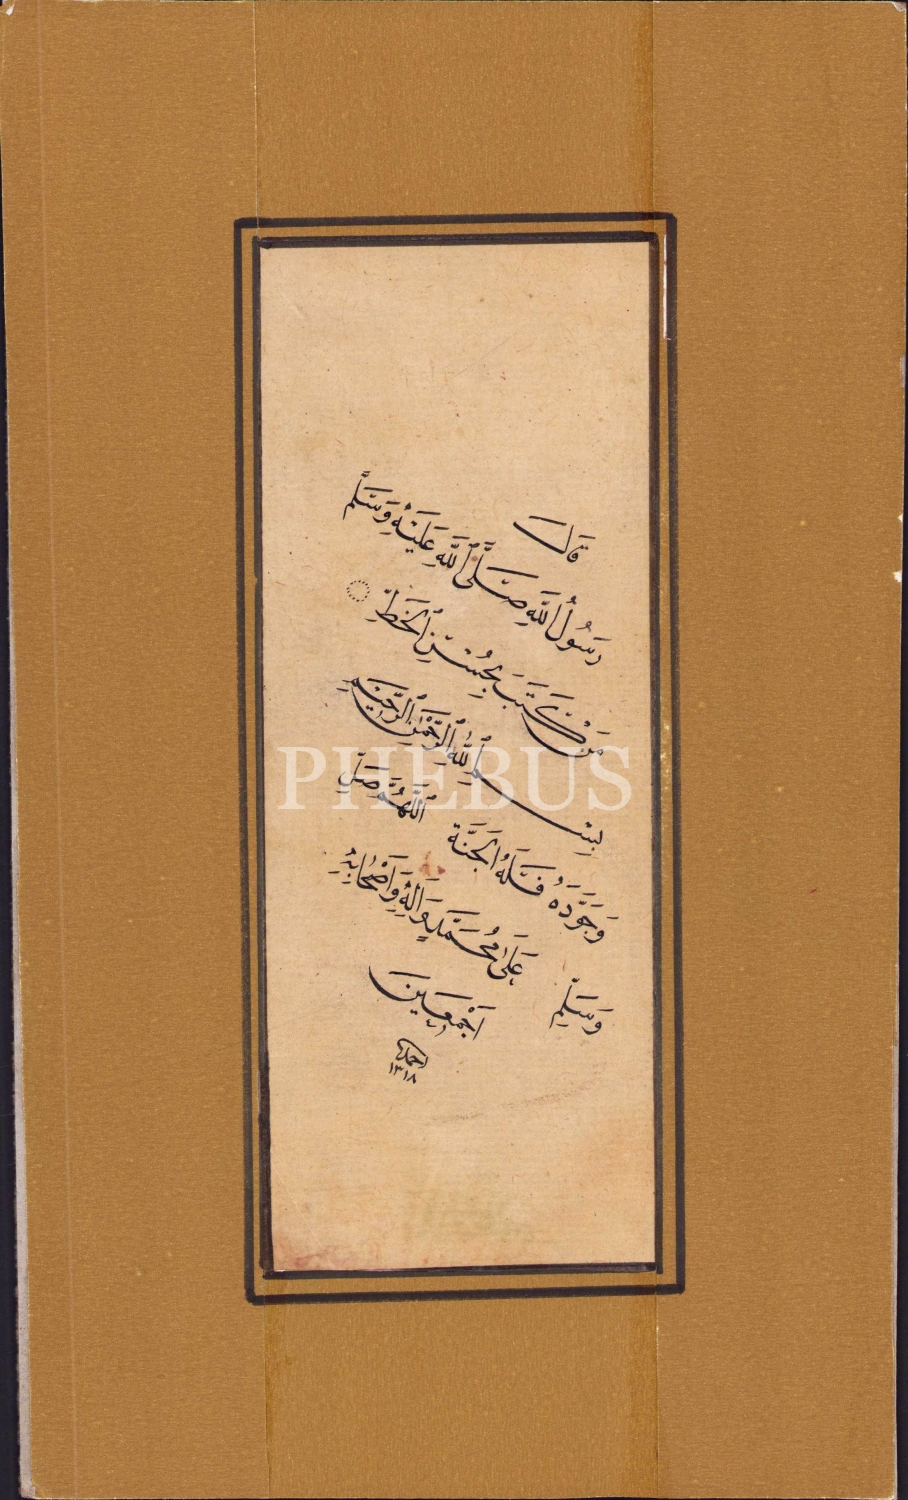 قَالَ
رَسُولُ اللّٰهِ صَلَّى اللّٰهُ عَلَيْهِ وَسَلَّمَ
مَنْ كَتَبَ بِحُسْنِ الْخَطِّ
بِسْمِ اللّٰهِ الرَّحْمٰنِ الرَّحِيمِ
وَجَوَّدَهُ فَلَهُ الْجَنَّةَ اَللّٰهُمَّ صَلِّ
عَلٰى مُحَمَّدٍ وَاٰلِهِ وَاَصْحَابِهِ
اَجْمَعِينَ وَسَلِّمْ
١٣١٨
PHEBUS